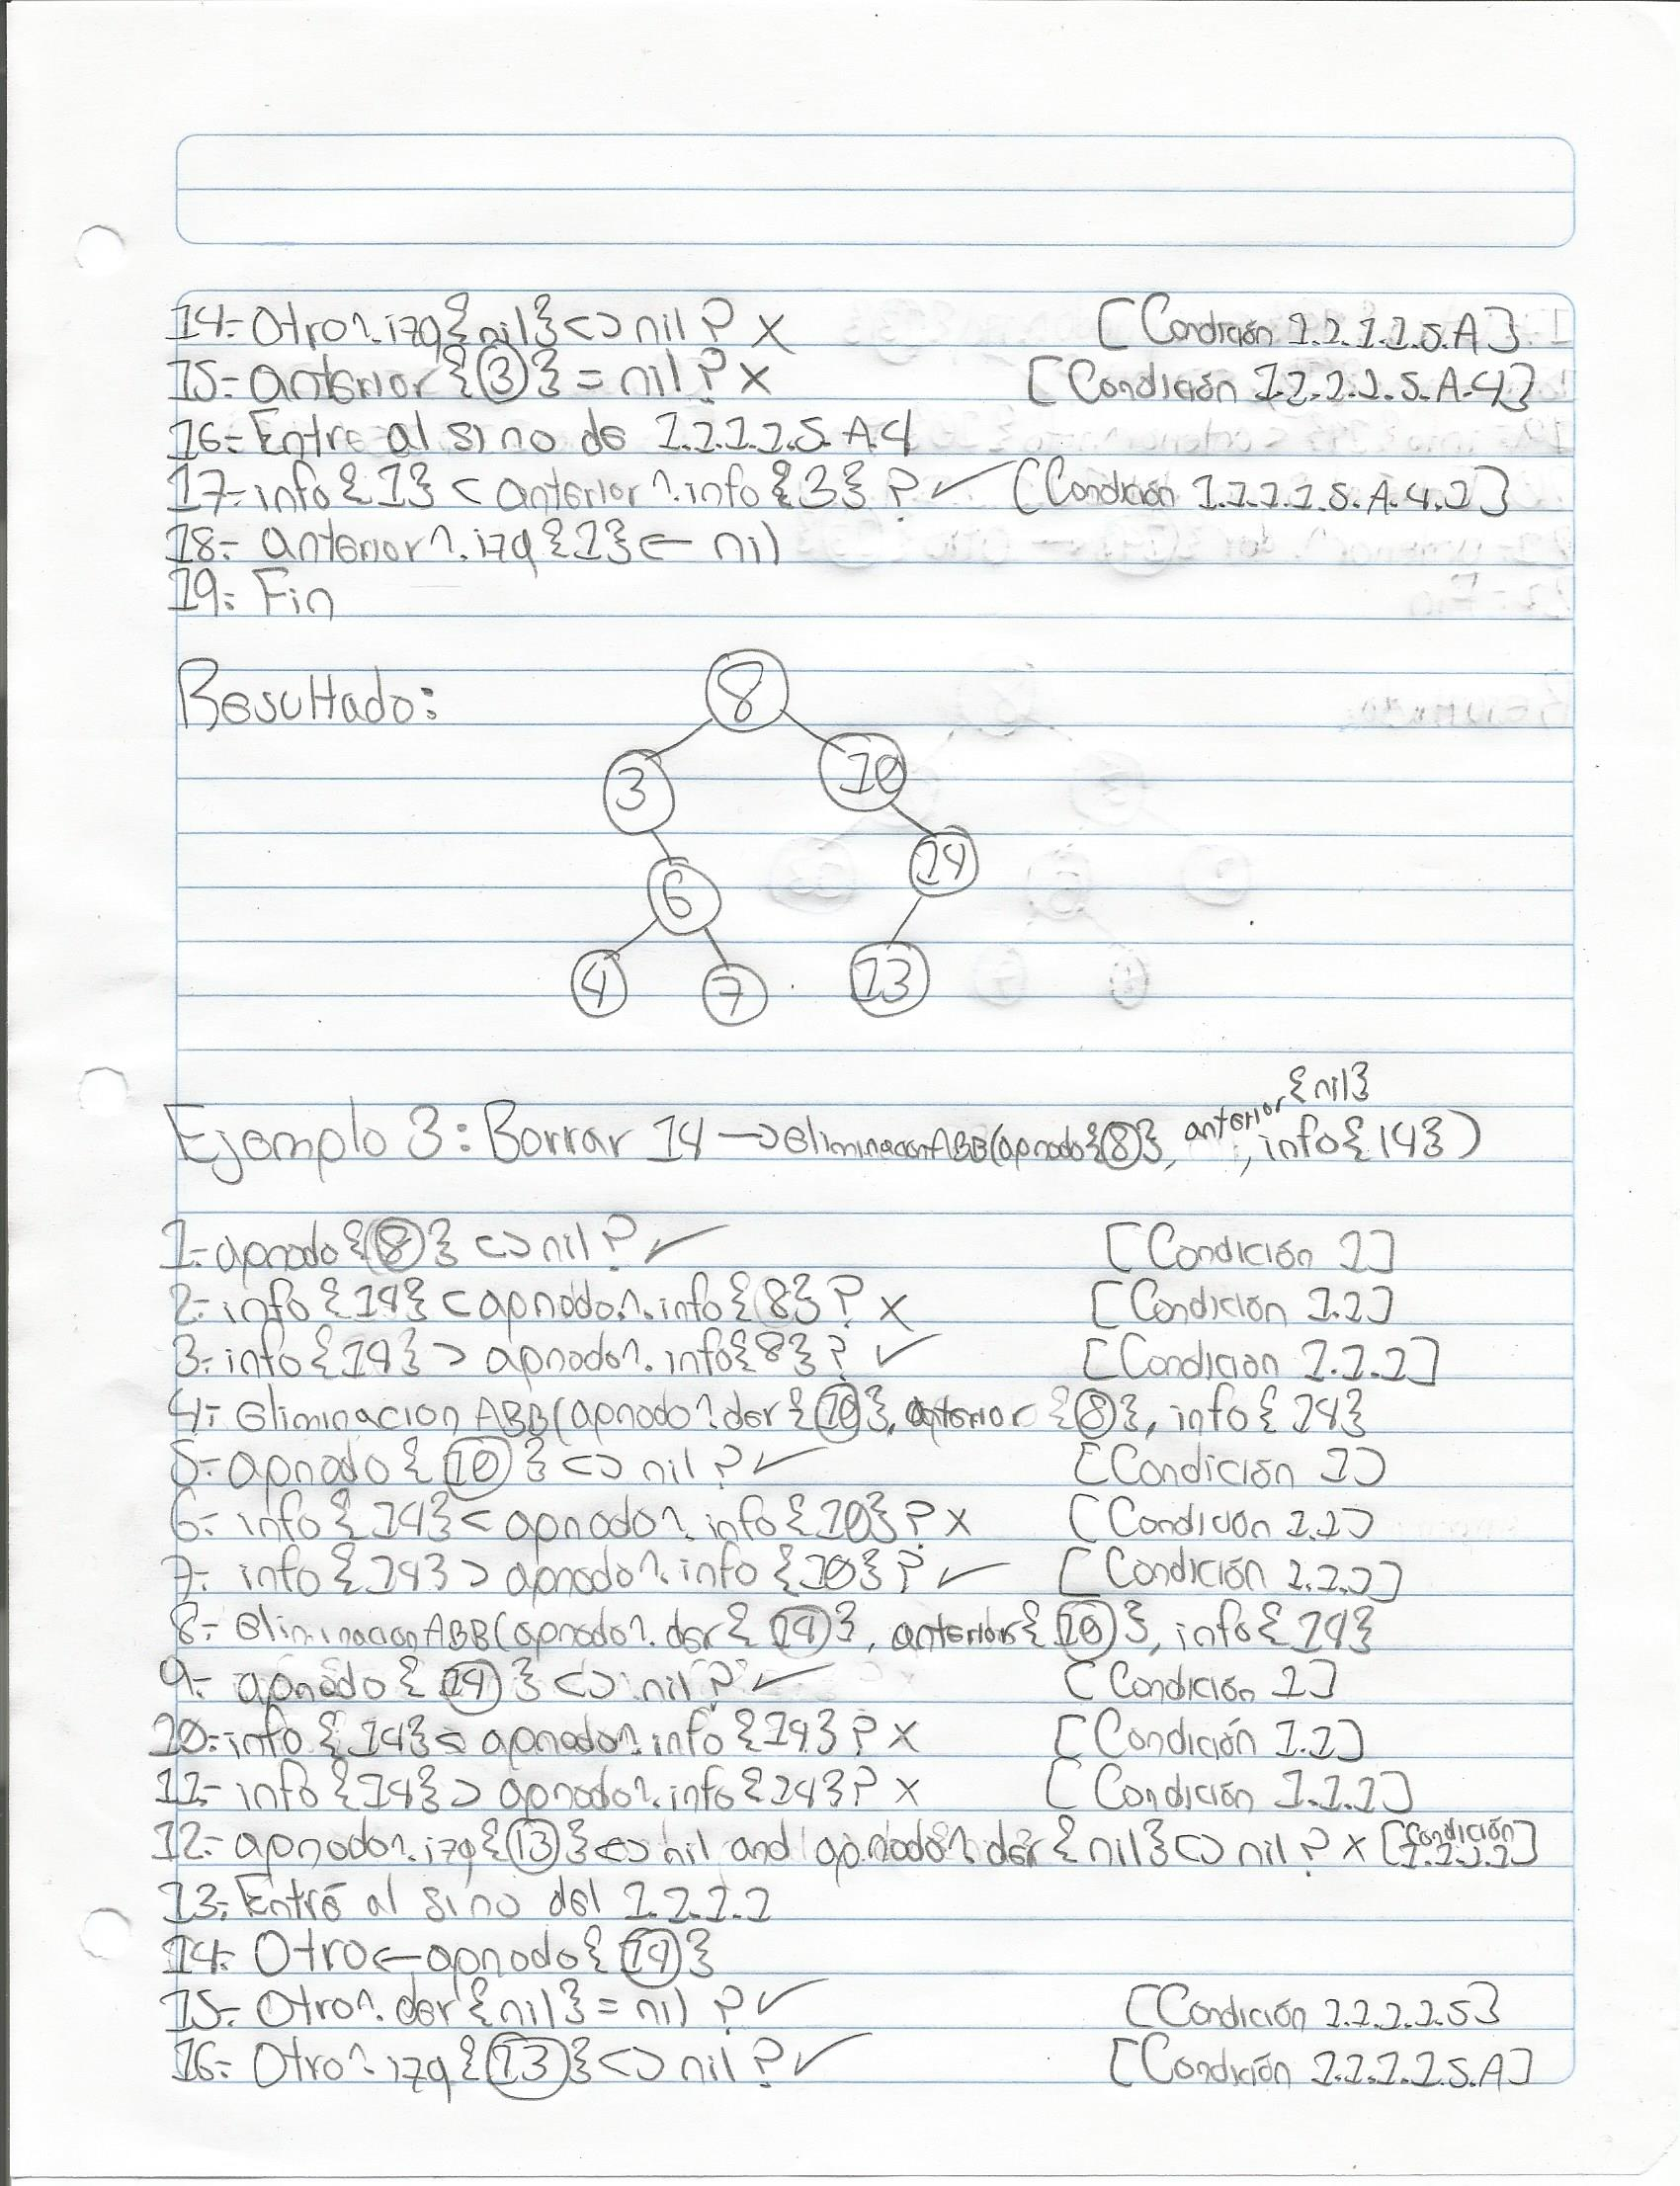 14.- Otro^.izq{nil}<>nil ? X [Condición 1.1.1.1.5.A]
15.- anterior{3} = nil ? X [Condición 1.1.1.1.5.A.4]
16.- Entre al sino de 1.1.1.1.5.A.4
17.- info{1} < anterior^.info{3} ? ✓ [Condición 1.1.1.1.5.A.4.1]
18.- anterior^.izq{1} ← nil
19.- Fin
Resultado:
8
3 10
6 14
4 7 13
{nil}
Ejemplo 3: Borrar 14 → eliminacionABB(apnodo{8}, anterior, info{14})
1.- apnodo{8} <> nil ? ✓ [Condición 1]
2.- info{14} < apnodo^.info{8} ? X [Condición 1.1]
3.- info{14} > apnodo^.info{8} ? ✓ [Condicion 1.1.1]
4.- eliminacionABB(apnodo^.der{10}, anterior{8}, info{14}
5.- apnodo{10} <> nil ? ✓ [Condición 1]
6.- info{14} < apnodo^.info{10} ? X [Condición 1.1]
7.- info{14} > apnodo^.info{10} ? ✓ [Condición 1.1.1]
8.- eliminacionABB(apnodo^.der{14}, anterior{10}, info{14}
9.- apnodo{14} <> nil ? ✓ [Condición 1]
10.- info{14} < apnodo^.info{14} ? X [Condición 1.1]
11.- info{14} > apnodo^.info{14} ? X [Condición 1.1.1]
12.- apnodo^.izq{13} <> nil and apnodo^.der{nil} <> nil ? X [Condición 1.1.1.1]
13.- Entré al sino del 1.1.1.1
14.- Otro ← apnodo{14}
15.- Otro^.der{nil} = nil ? ✓ [Condición 1.1.1.1.5]
16.- Otro^.izq{13} <> nil ? ✓ [Condición 1.1.1.1.5.A]